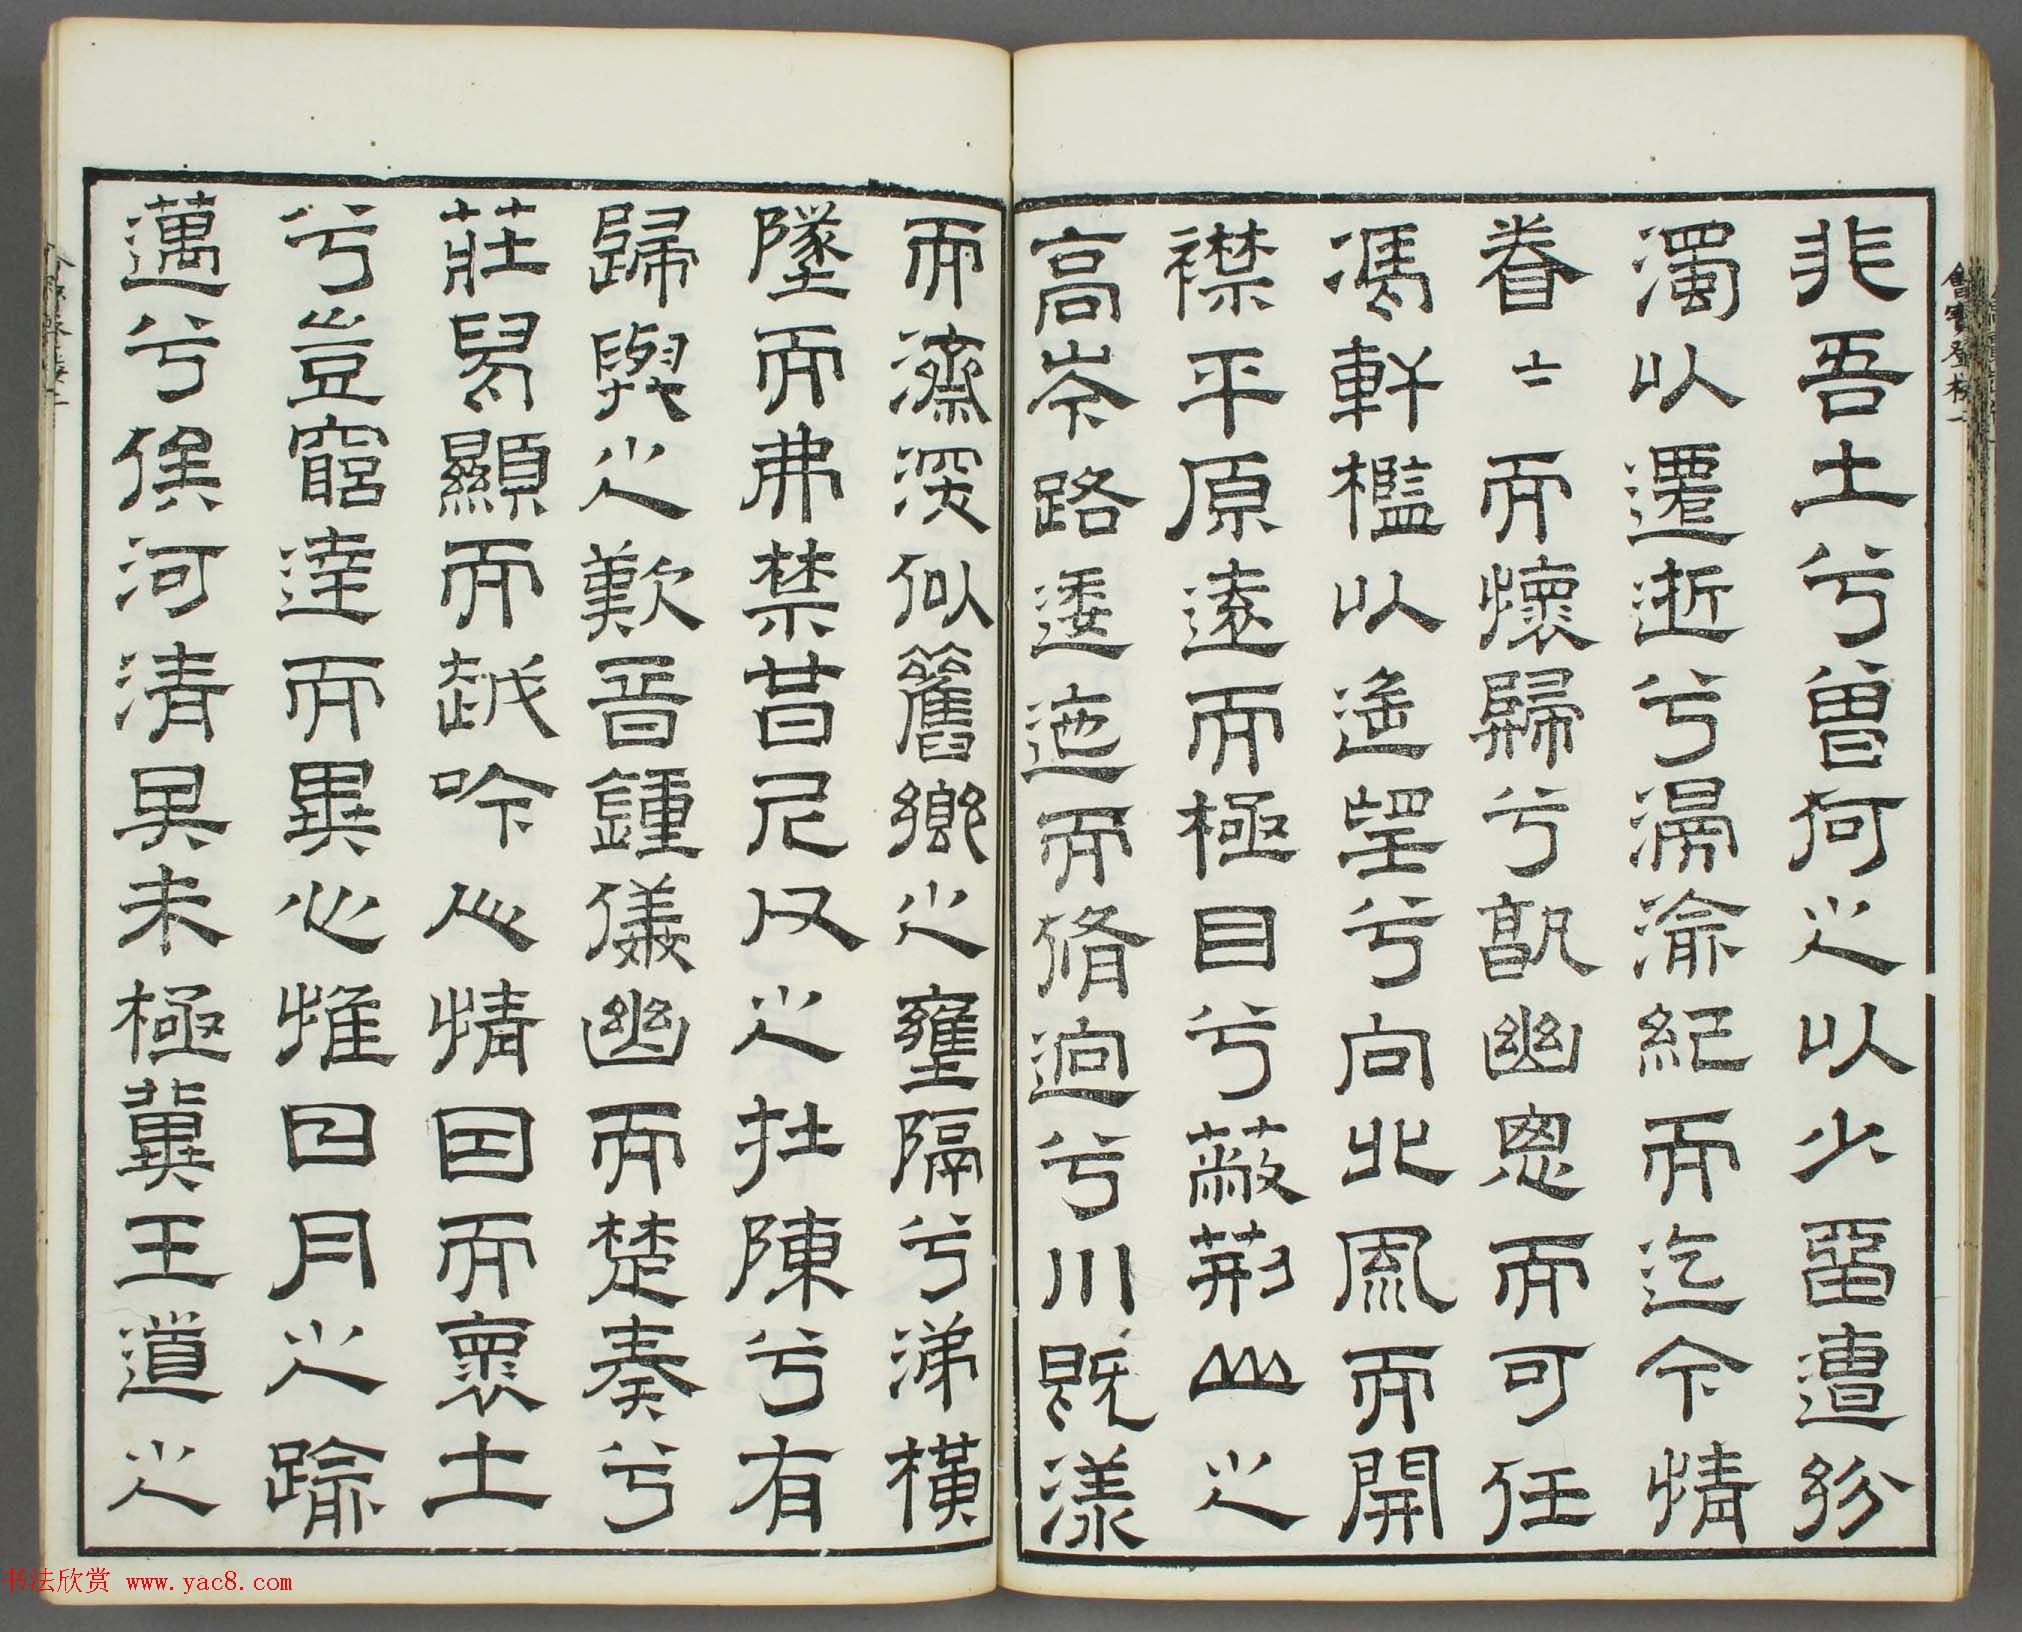 非吾土兮曾何之以少留遭紛
濁以遷逝兮漏渝紀而迄今情
眷二二而懷歸兮孰幽思而可任
馮軒檻以遙望兮向北風而開
襟平原遠而極目兮蔽荊山之
高岑路逶迤而脩迥兮川既漾
而濟深似舊鄉之壅隔兮涕橫
墜而弗禁昔尼父之在陳兮有
歸與之歎音鍾儀幽而楚奏兮
莊舄顯而越吟人情同而褱土
兮豈窮達而異心惟日月之踰
邁兮俟河清其未極冀王道之
书法欣赏 www.yac8.com